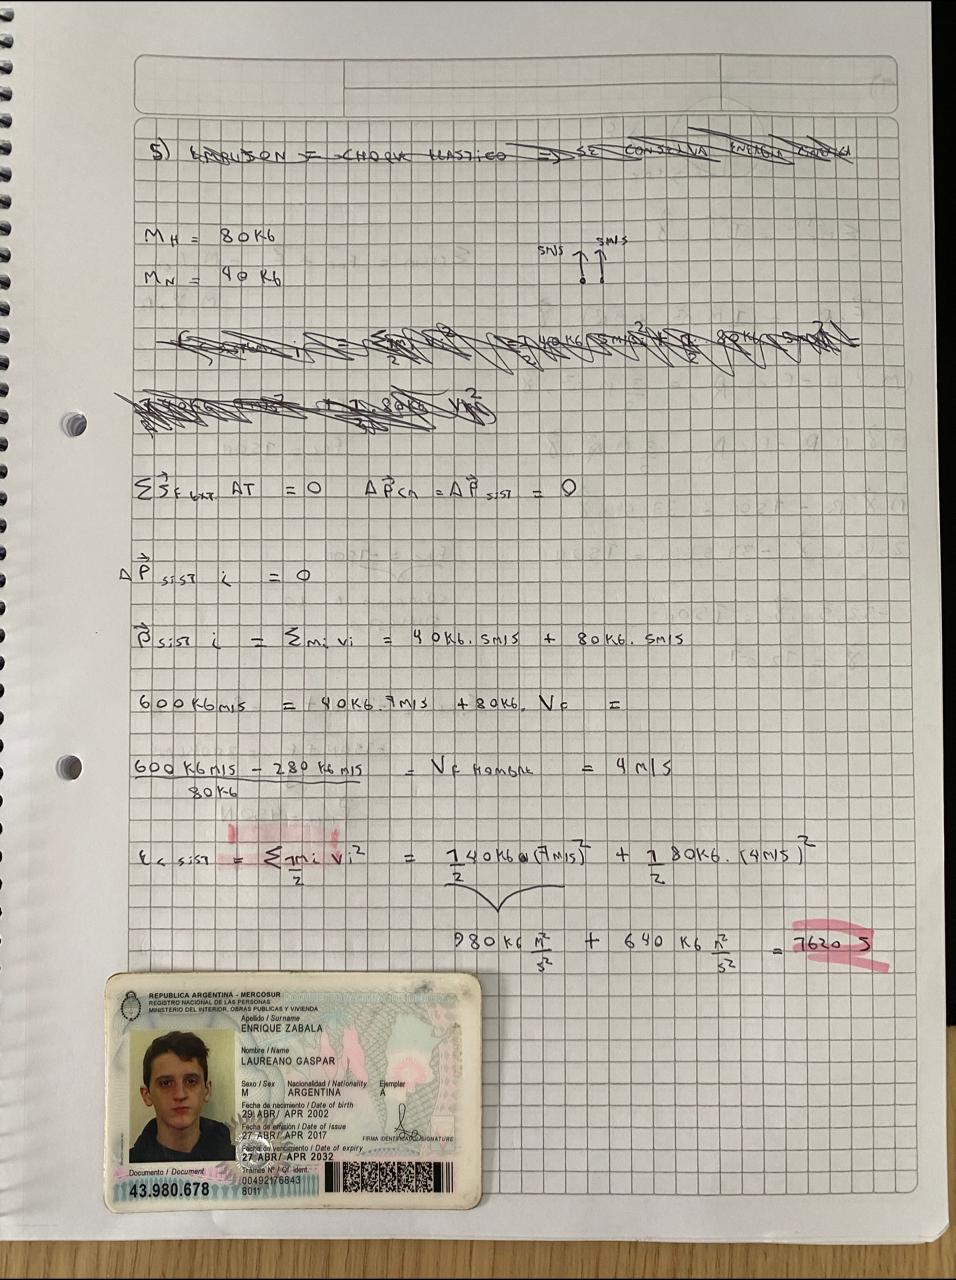 5) EMPUJON = CHOQUE ELASTICO => SE CONSERVA ENERGIA
MH = 80KG
MN = 40 KG
5M/S 5M/S
ΣJ⃗F EXT. ΔT = 0 ΔP⃗CM = ΔP⃗SIST = 0
ΔP⃗ SIST i = 0
P⃗ SIST i = Σmi vi = 40KG. 5M/S + 80KG. 5M/S
600KGM/S = 40KG.7M/S + 80KG. VF =
600 KGM/S - 280 KGM/S = VF HOMBRE = 4 M/S
80KG
EC SIST = Σ 1/2 mi vi² = 1/2 40KG . (7M/S)² + 1/2 80KG. (4M/S)²
980KG M²/S² + 640 KG M²/S² = 1620 J
REPUBLICA ARGENTINA - MERCOSUR
REGISTRO NACIONAL DE LAS PERSONAS
MINISTERIO DEL INTERIOR, OBRAS PUBLICAS Y VIVIENDA
Apellido / Surname
ENRIQUE ZABALA
Nombre / Name
LAUREANO GASPAR
Sexo / Sex Nacionalidad / Nationality Ejemplar
M ARGENTINA A
Fecha de nacimiento / Date of birth
29 ABR/ APR 2002
Fecha de emisión / Date of issue
27 ABR/ APR 2017
Fecha de vencimiento / Date of expiry
27 ABR/ APR 2032
FIRMA IDENTIFICADO / SIGNATURE
Documento / Document
43.980.678
Trámite Nº / Of. ident.
00492176843
8011